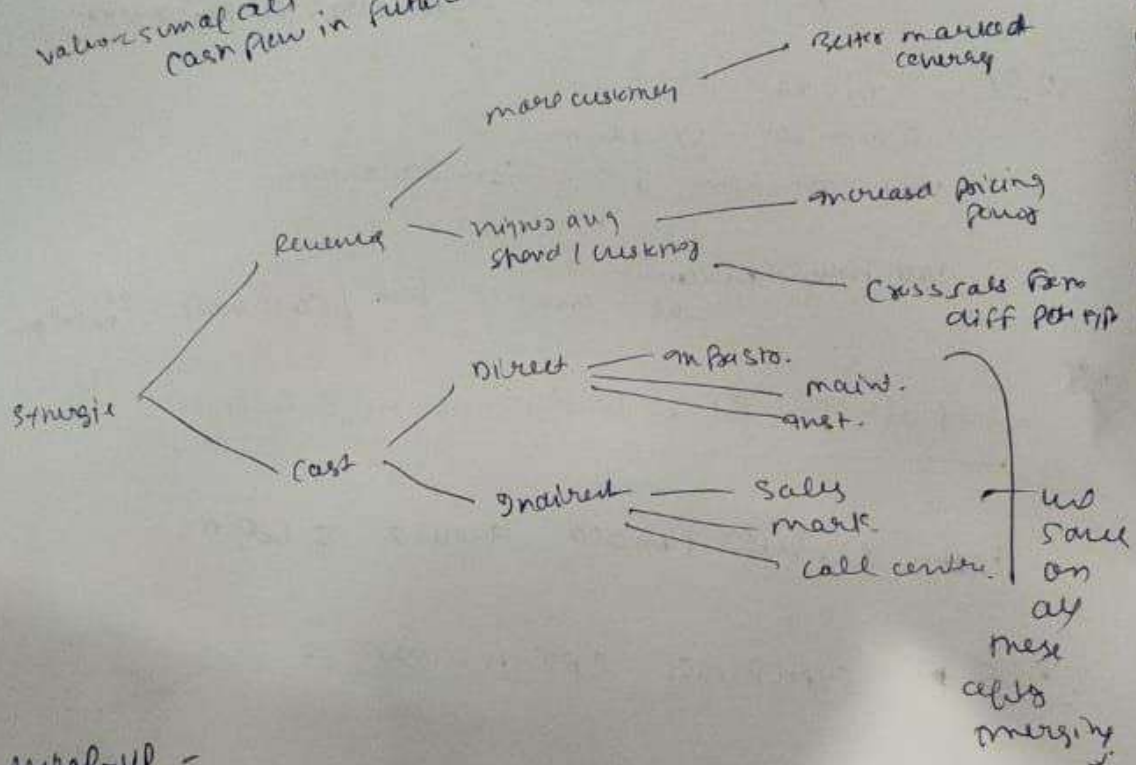 value = sum of all
cash flow in future
more customer
Better market
coverag
Revenue
Higher avg
spend / customer
increased pricing
power
Cross sales from
diff
Synergie
Cost
Direct
infrastr.
maint.
inst.
Indirect
Sales
mark.
call centre.
we
save
on
all
these
after
merging
Wrap-up -